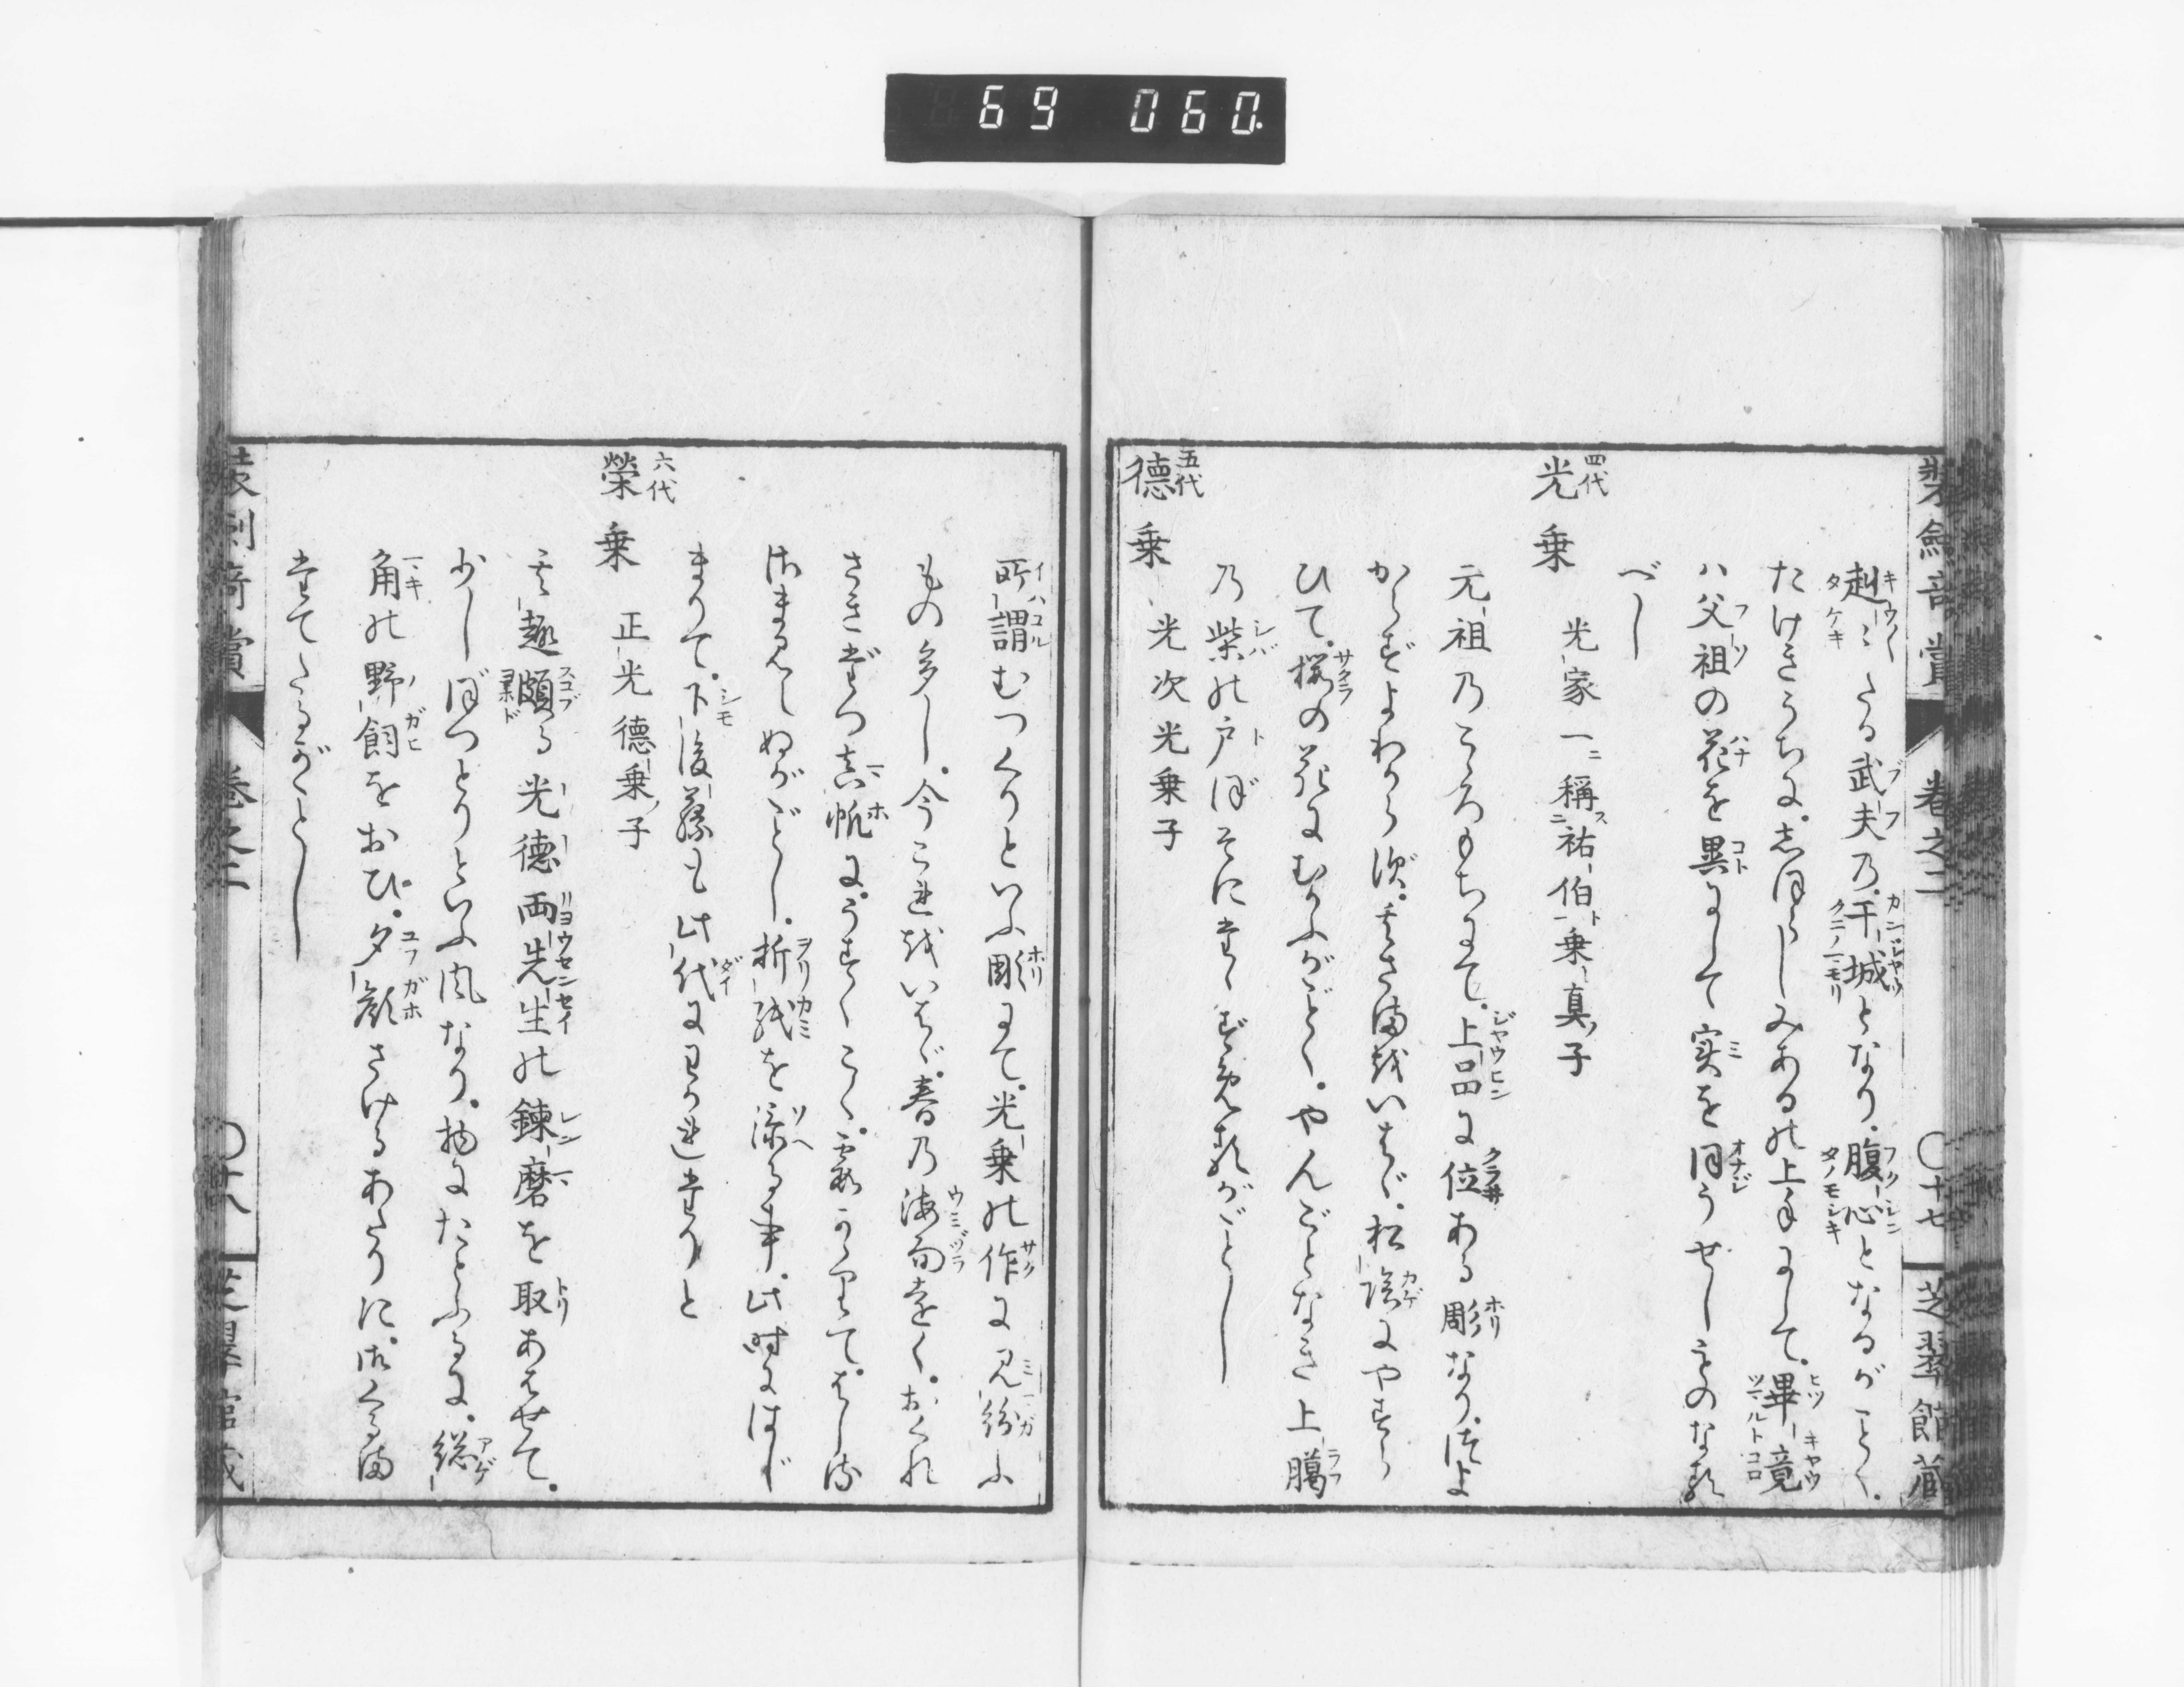 69 060
装劍奇賞 巻之二 〇十七 芝翠館蔵
赳〻たる武夫乃干城となり腹心となるがごとく
たけきうちにしほらしみあるの上手にして畢竟
ハ父祖の花を異にして実を同うせしものなる
べし
四代
光乗 光家一ニ稱ス祐伯ト乗真ノ子
元祖乃こゝろもちにて上品に位ある彫なりつよ
からずよわからず其さまをいはゞ松陰にやすら
ひて桜の花にむかふがごとくやんごとなき上臈
乃柴の戸ぼそに
五代
德乗 光次光乗子
所謂むつくりといふ彫にて光乗の作に見紛ふ
もの多し今これをいはゞ春乃海面遠くおくれ
さきだつ真帆にうすくこく霞かゝりて
ぬがごとし折紙を添る事此時にはじ
まりて下後藤も此代にわかれたりと
六代
榮乗 正光德乗ノ子
其趣頗る光德両先生の錬磨を取あはせて
少しぼつとりといふ風なり物にたとふるに総
角の野飼をおひ夕顔さけるあたりに
たてたるがごとし
装劍奇賞 巻之二 〇十八 芝翠館蔵